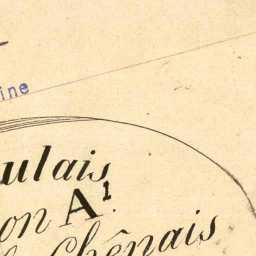 ine
ulais
on A¹.
Chênais